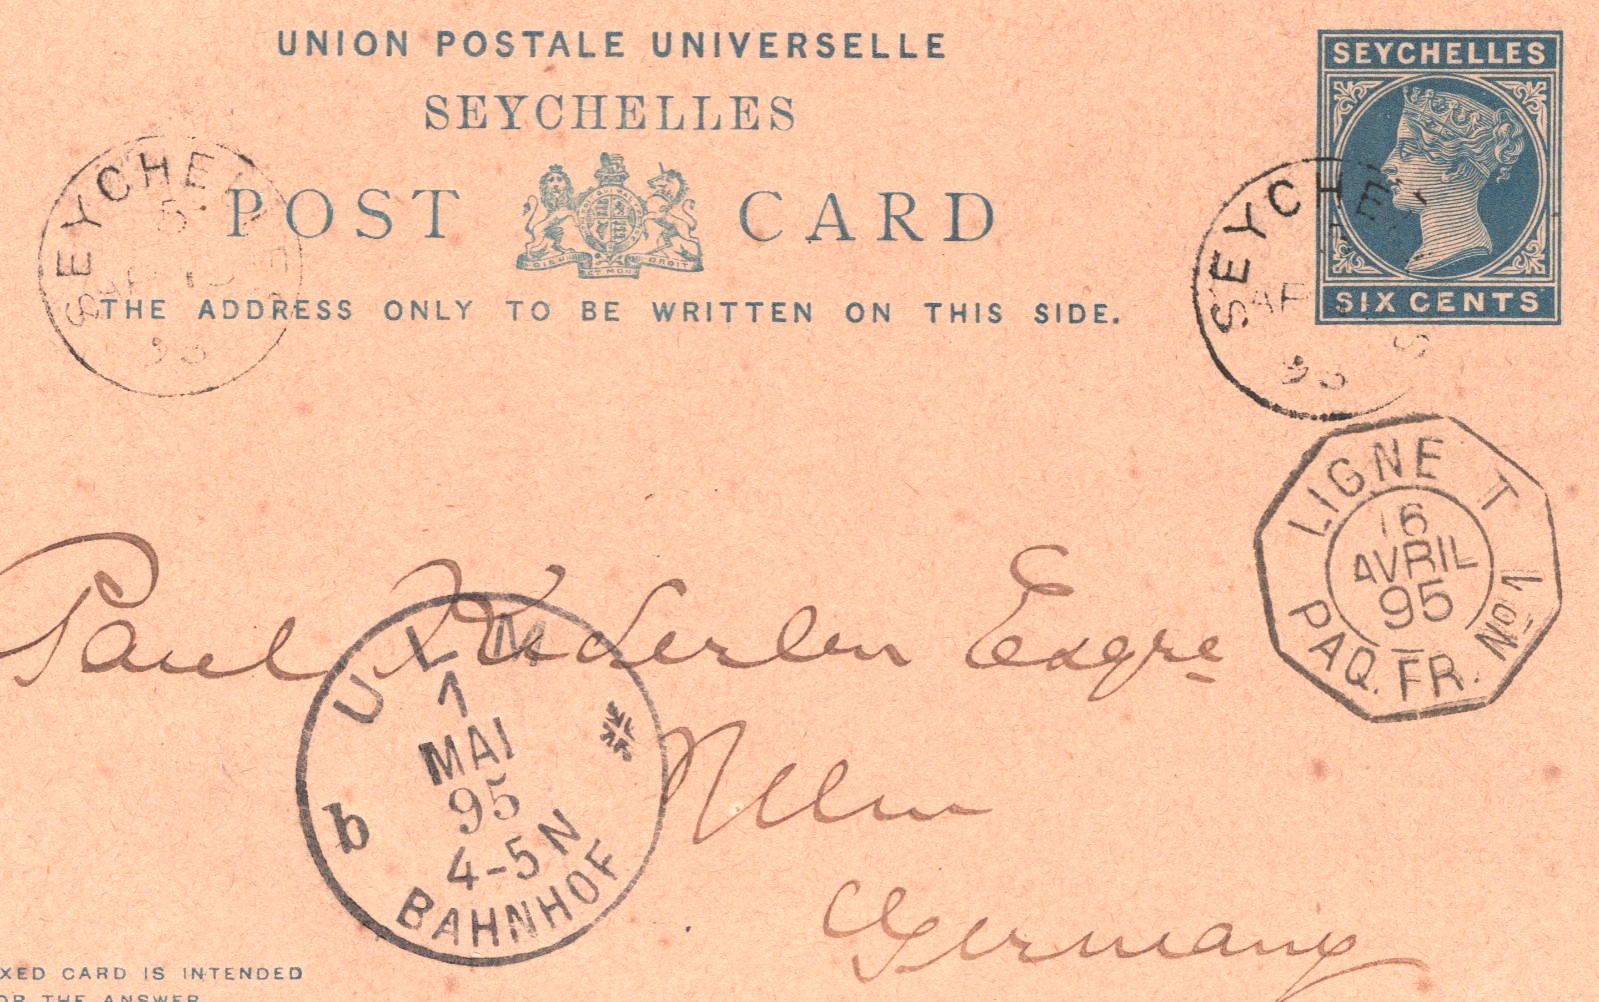 UNION POSTALE UNIVERSELLE
SEYCHELLES
POST CARD
THE ADDRESS ONLY TO BE WRITTEN ON THIS SIDE.
SEYCHELLES
SIX CENTS
SEYCHELLES
95
SEYCHELLES
95
LIGNE T
16
AVRIL
95
PAQ. FR. No 1
Paul Esqre
Ulm
Germany
ULM
1
MAI
95
4-5 N
b
BAHNHOF
XED CARD IS INTENDED
OR THE ANSWER